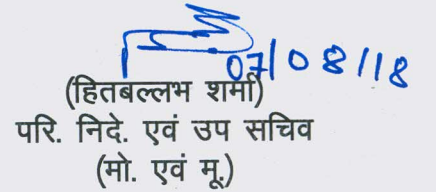 07/08/18
(हितबल्लभ शर्मा)
परि. निदे. एवं उप सचिव
(मो. एवं मू.)